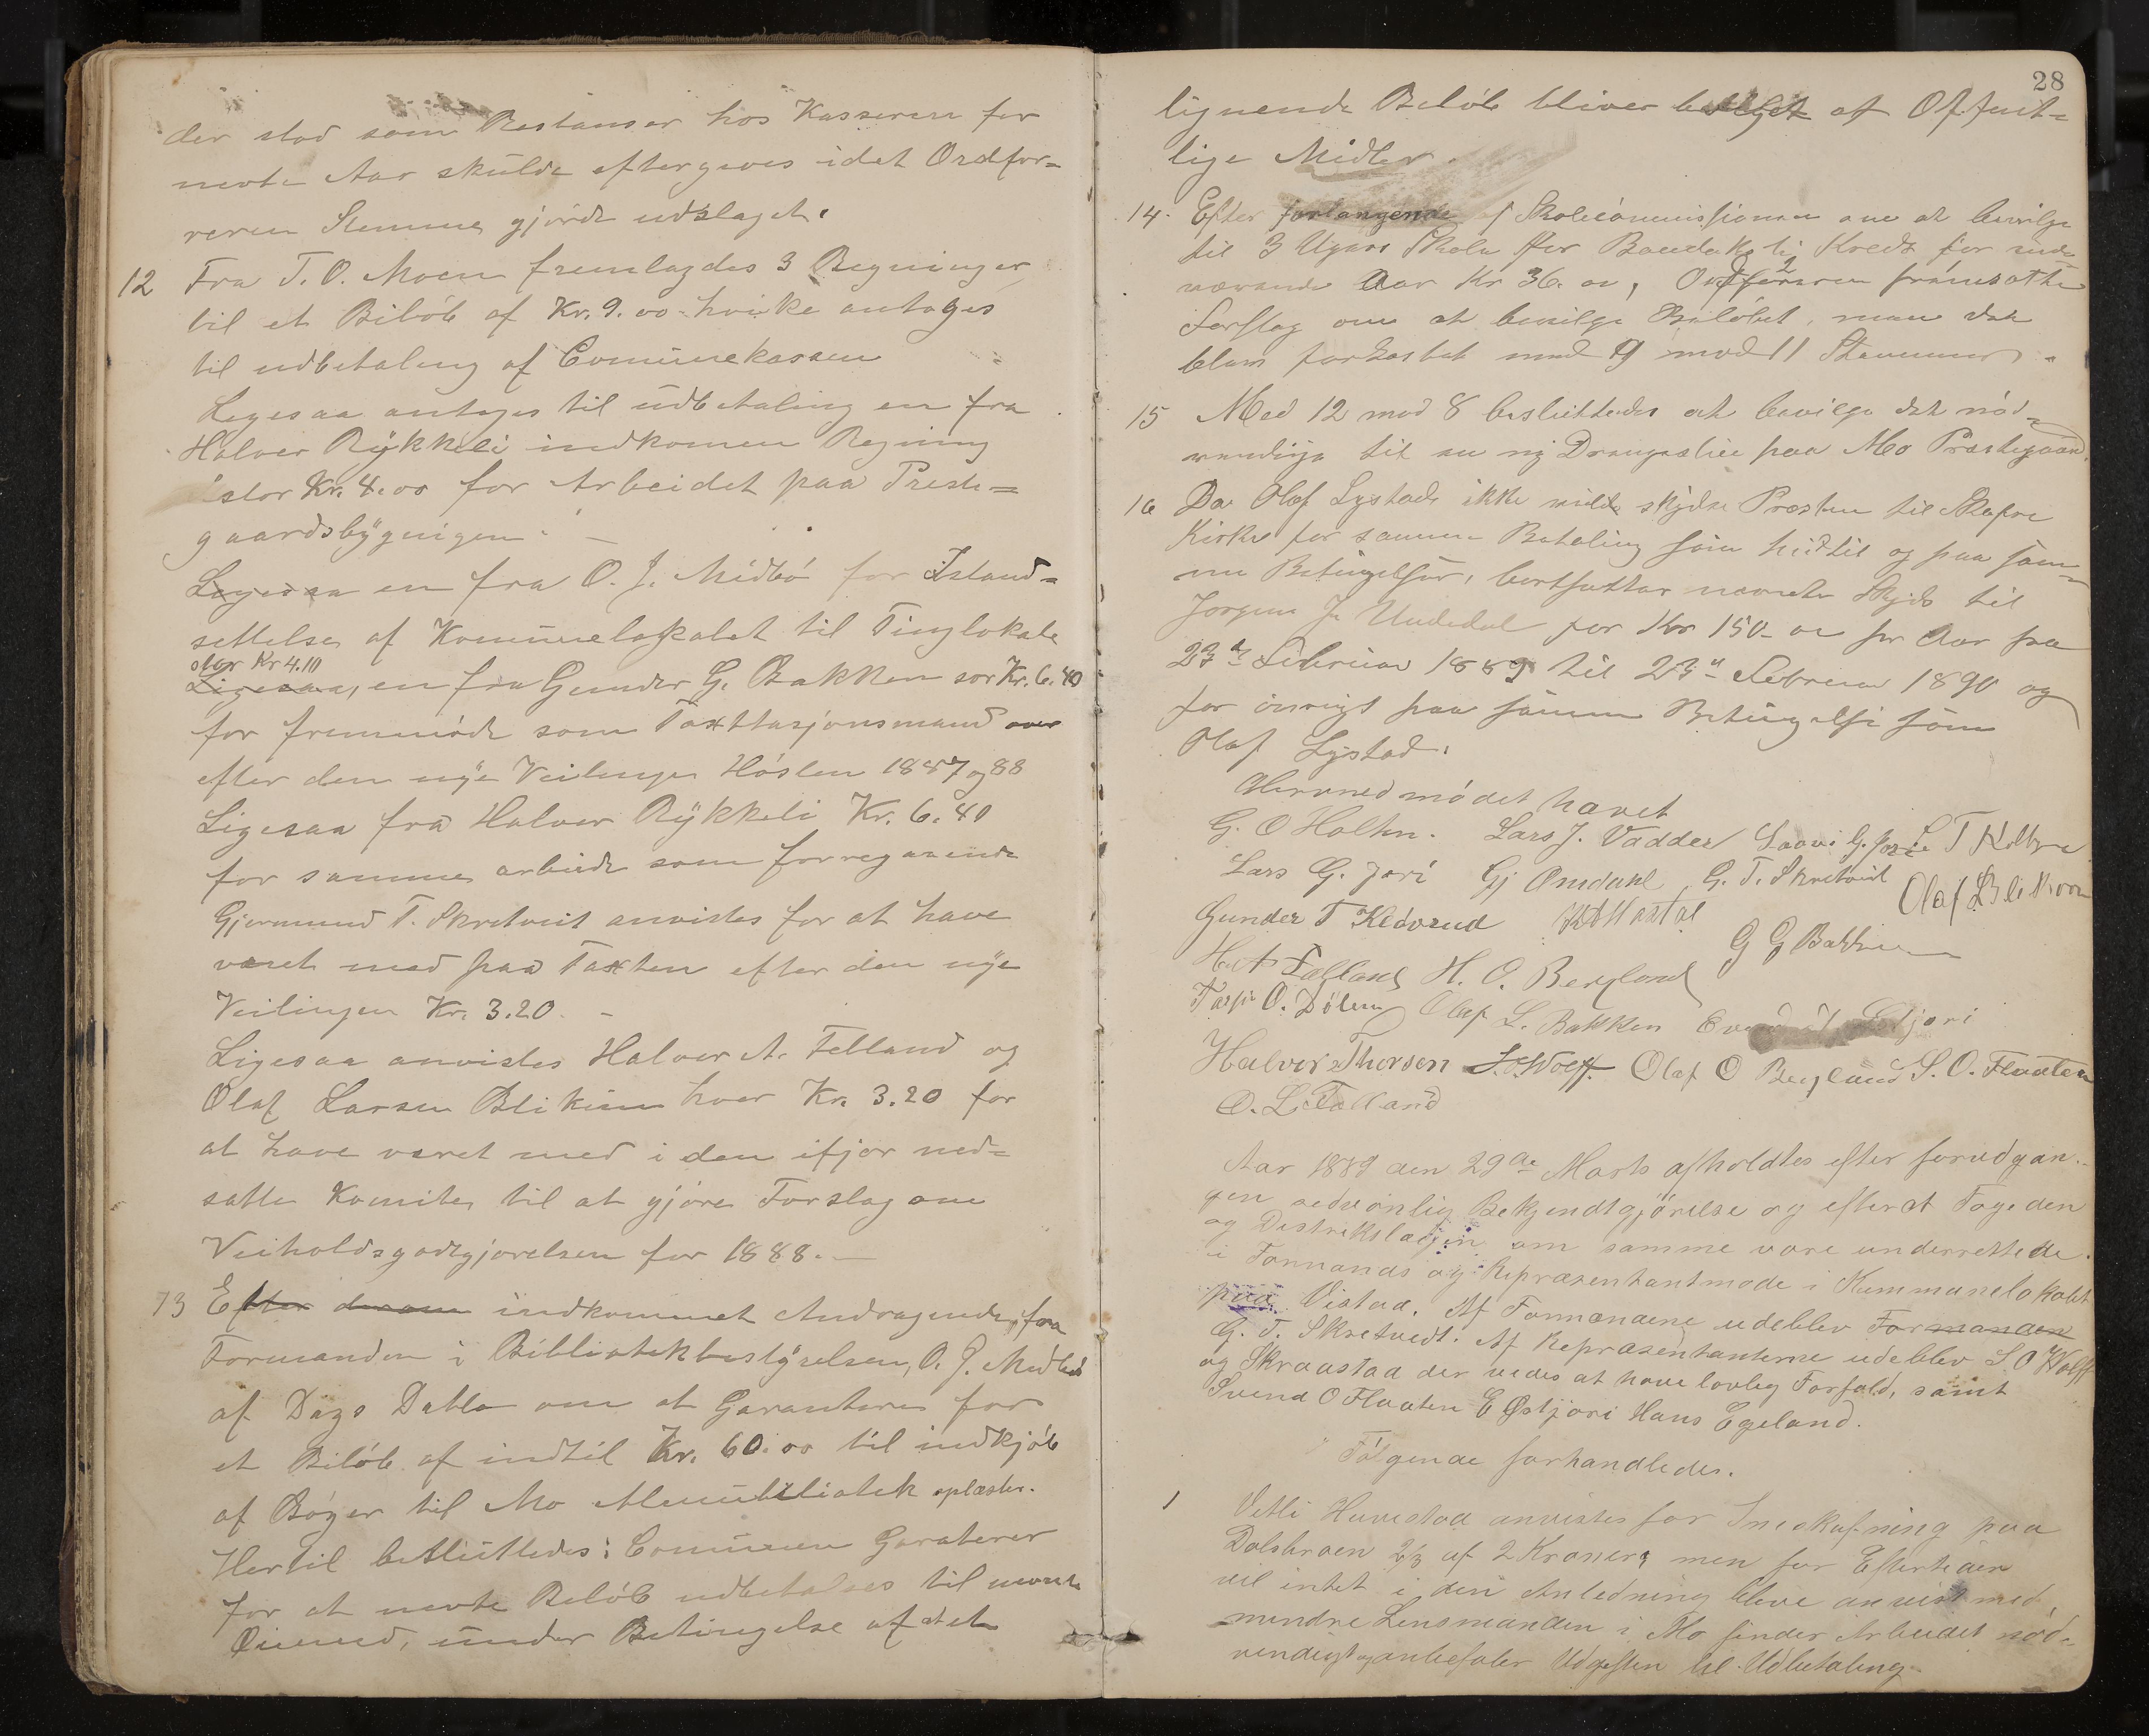 der stod som Restanser hos Kasseren for
nevte Aar skulde eftergives idet Ordfor=
reren Stemme gjorde udslaget.
12 Fra T. O. Moen fremlagdes 3 Regninger
til et Biløb af Kr. 9.00 hvilke antoges
til udbetaling af Comunekassen
Ligesaa antoges til udbetaling en fra
Halvor Rykkeli indkomen Regning
stor Kr. 4.00 for Arbeidet paa Preste=
gaardsbygnigen. —
Ligesaa en fra O. J. Midbö for Istand=
settelse af Komunelokalet til Tinglokale
stor Kr 4.10
Ligesaa, en fra Gunder G. Bakken sor Kr. 6.40
for fremmöde som Taxttasjonsmand over
efter den nye Veilengn Hösten 1887 og 88
Ligesaa fra Halvor Rykkeli Kr. 6.40
for samme arbeide som forregaaende
Gjermund T. Skretveit anvistes for at have
været med paa Taxten efter den nye
Veilingen Kr. 3.20 —
Ligesaa anvistes Halvor A. Felland og
Olaf Larsen Blikom hver Kr. 3.20 for
at have været med i den ifjor ned=
satte Komite til at gjöre Forslag om
Veiholdsgodtgjorelsen for 1888. —
13 Efter derom indkommet Andragende fra
Formanden i Bibliotekbestyrelsen, O. J. Midbö
af Dags Datto om at Garantere for
et Biløb af indtil Kr. 60.00 til indkjöb
af Böger til Mo Almubibliotek oplæstes.
Hertil besluttedes: Comunen Garaterer
for at nevte Beløb udbetales til nevnte
Öiemed, under Betingelse af at et
28
lignende Beløb bliver bevilget af Offent=
lige Midler.
14. Efter forlangende af Skolecommissionen om at bevilge
til 3 Ugers Skole for Bandaksli Kreds for inde
værende Aar Kr 36.00, Ordföreren fremsatte
Forslag om at bevilge Beløbet, men det
blev forkastet med 9 mod 11 Stemmer.
15 Med 12 mod 8 besluttedes at bevilge det nöd=
vendige til en ny Drengestue paa Mo Præstegaard.
16 Da Olaf Lystad ikke vilde skydse Præsten til Skafse
Kirke for samme Betaling som hidtil og paa sam=
me Betingelser, bortsattes nævnte Skyds til
Jørgen J. Undedal for Kr 150.00 pr Aar fra
23de Februar 1889 til 23de Februar 1890 og
for övrigt paa samme Betingelse som
Olaf Lystad.
Hermed mödet hævet
G. O Holten. Lars J. Vadder Saavi G. Jore L T Kolltve
Lars G. Jori Gj Omdahl G. T. Skretveit Olaf L Blikom
Gunder T Kledvrud G G Bakken
H. A Felland H. O. Berglund
O. Dölen Olaf L. Bakken Östjori
Halvor Thorsen S. O. Wolff. Olaf O Berglund S. O. Flaaten
O. L. Felland
Aar 1889 den 29de Marts afholdtes efter forudgan-
gen sedvanlig Bekjendtgjörelse og efterat Fogeden
og Distrikslægen om samme vare underrettede
i Formands og Repræsentantmøde i Kummunelokalet
paa Vistad. Af Formændene udeblev Formanden
G. T. Skretvedt. Af Repræsentanterne udeblev S. O Wolff
og Skraastad der vides at have lovleg Forfald, samt
Svend O Flaaten E Østjori Hans Egeland.
Fölgende forhandledes.
1 Vetli Huvestad anvistes for Sneskufning paa
Dalsbroen 2/3 af 2 Kroner, men for Eftertiden
vil intet i den Anledning blive anvist med
mindre Lensmanden i Mo finder Arbeidet nöd-
vendigt og anbefaler Udgiften til Udbetaling